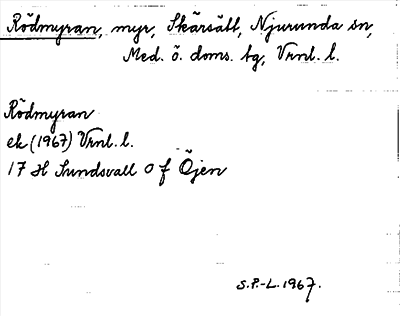 Rödmyran, myr, Skärsätt, Njurunda sn,
Med. ö. doms. bg, Vrnl. l.
Rödmyran
ek (1967) Vrnl. l.
17 H Sundsvall O f Öjen
S.P.-L. 1967.